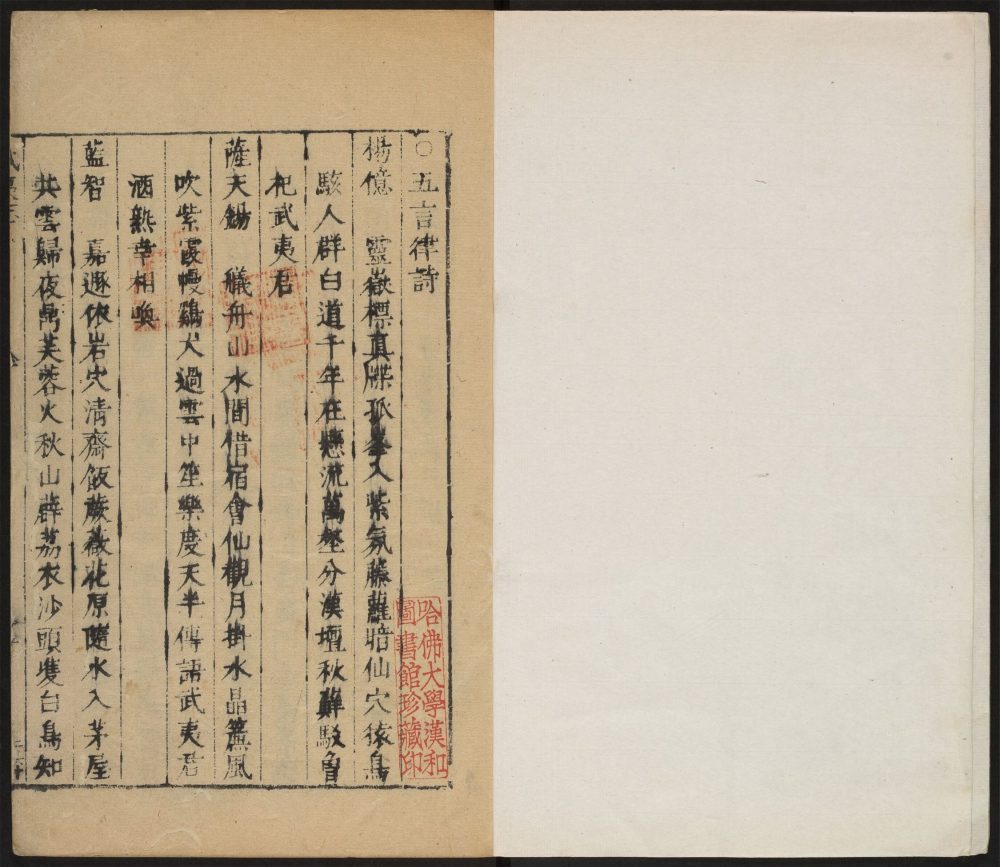 ○五言律詩
楊億　靈嶽標真牒孤峯入紫氛藤蘿暗仙穴猿鳥
駭人群白道千年在懸流萬壑分漢壇秋蘚駁曽
祀武夷君
薩天錫　艤舟山水間借宿會仙觀月掛水晶簾風
吹紫霞幔鷄犬過雲中笙樂度天半傳語武夷君
酒熟幸相喚
藍智　嘉遯依岩穴清齋飯蕨薇花原隨水入茅屋
共雲歸夜鼎芙蓉火秋山薜荔衣沙頭雙白鳥知
哈佛大學漢和
圖書館珍藏印